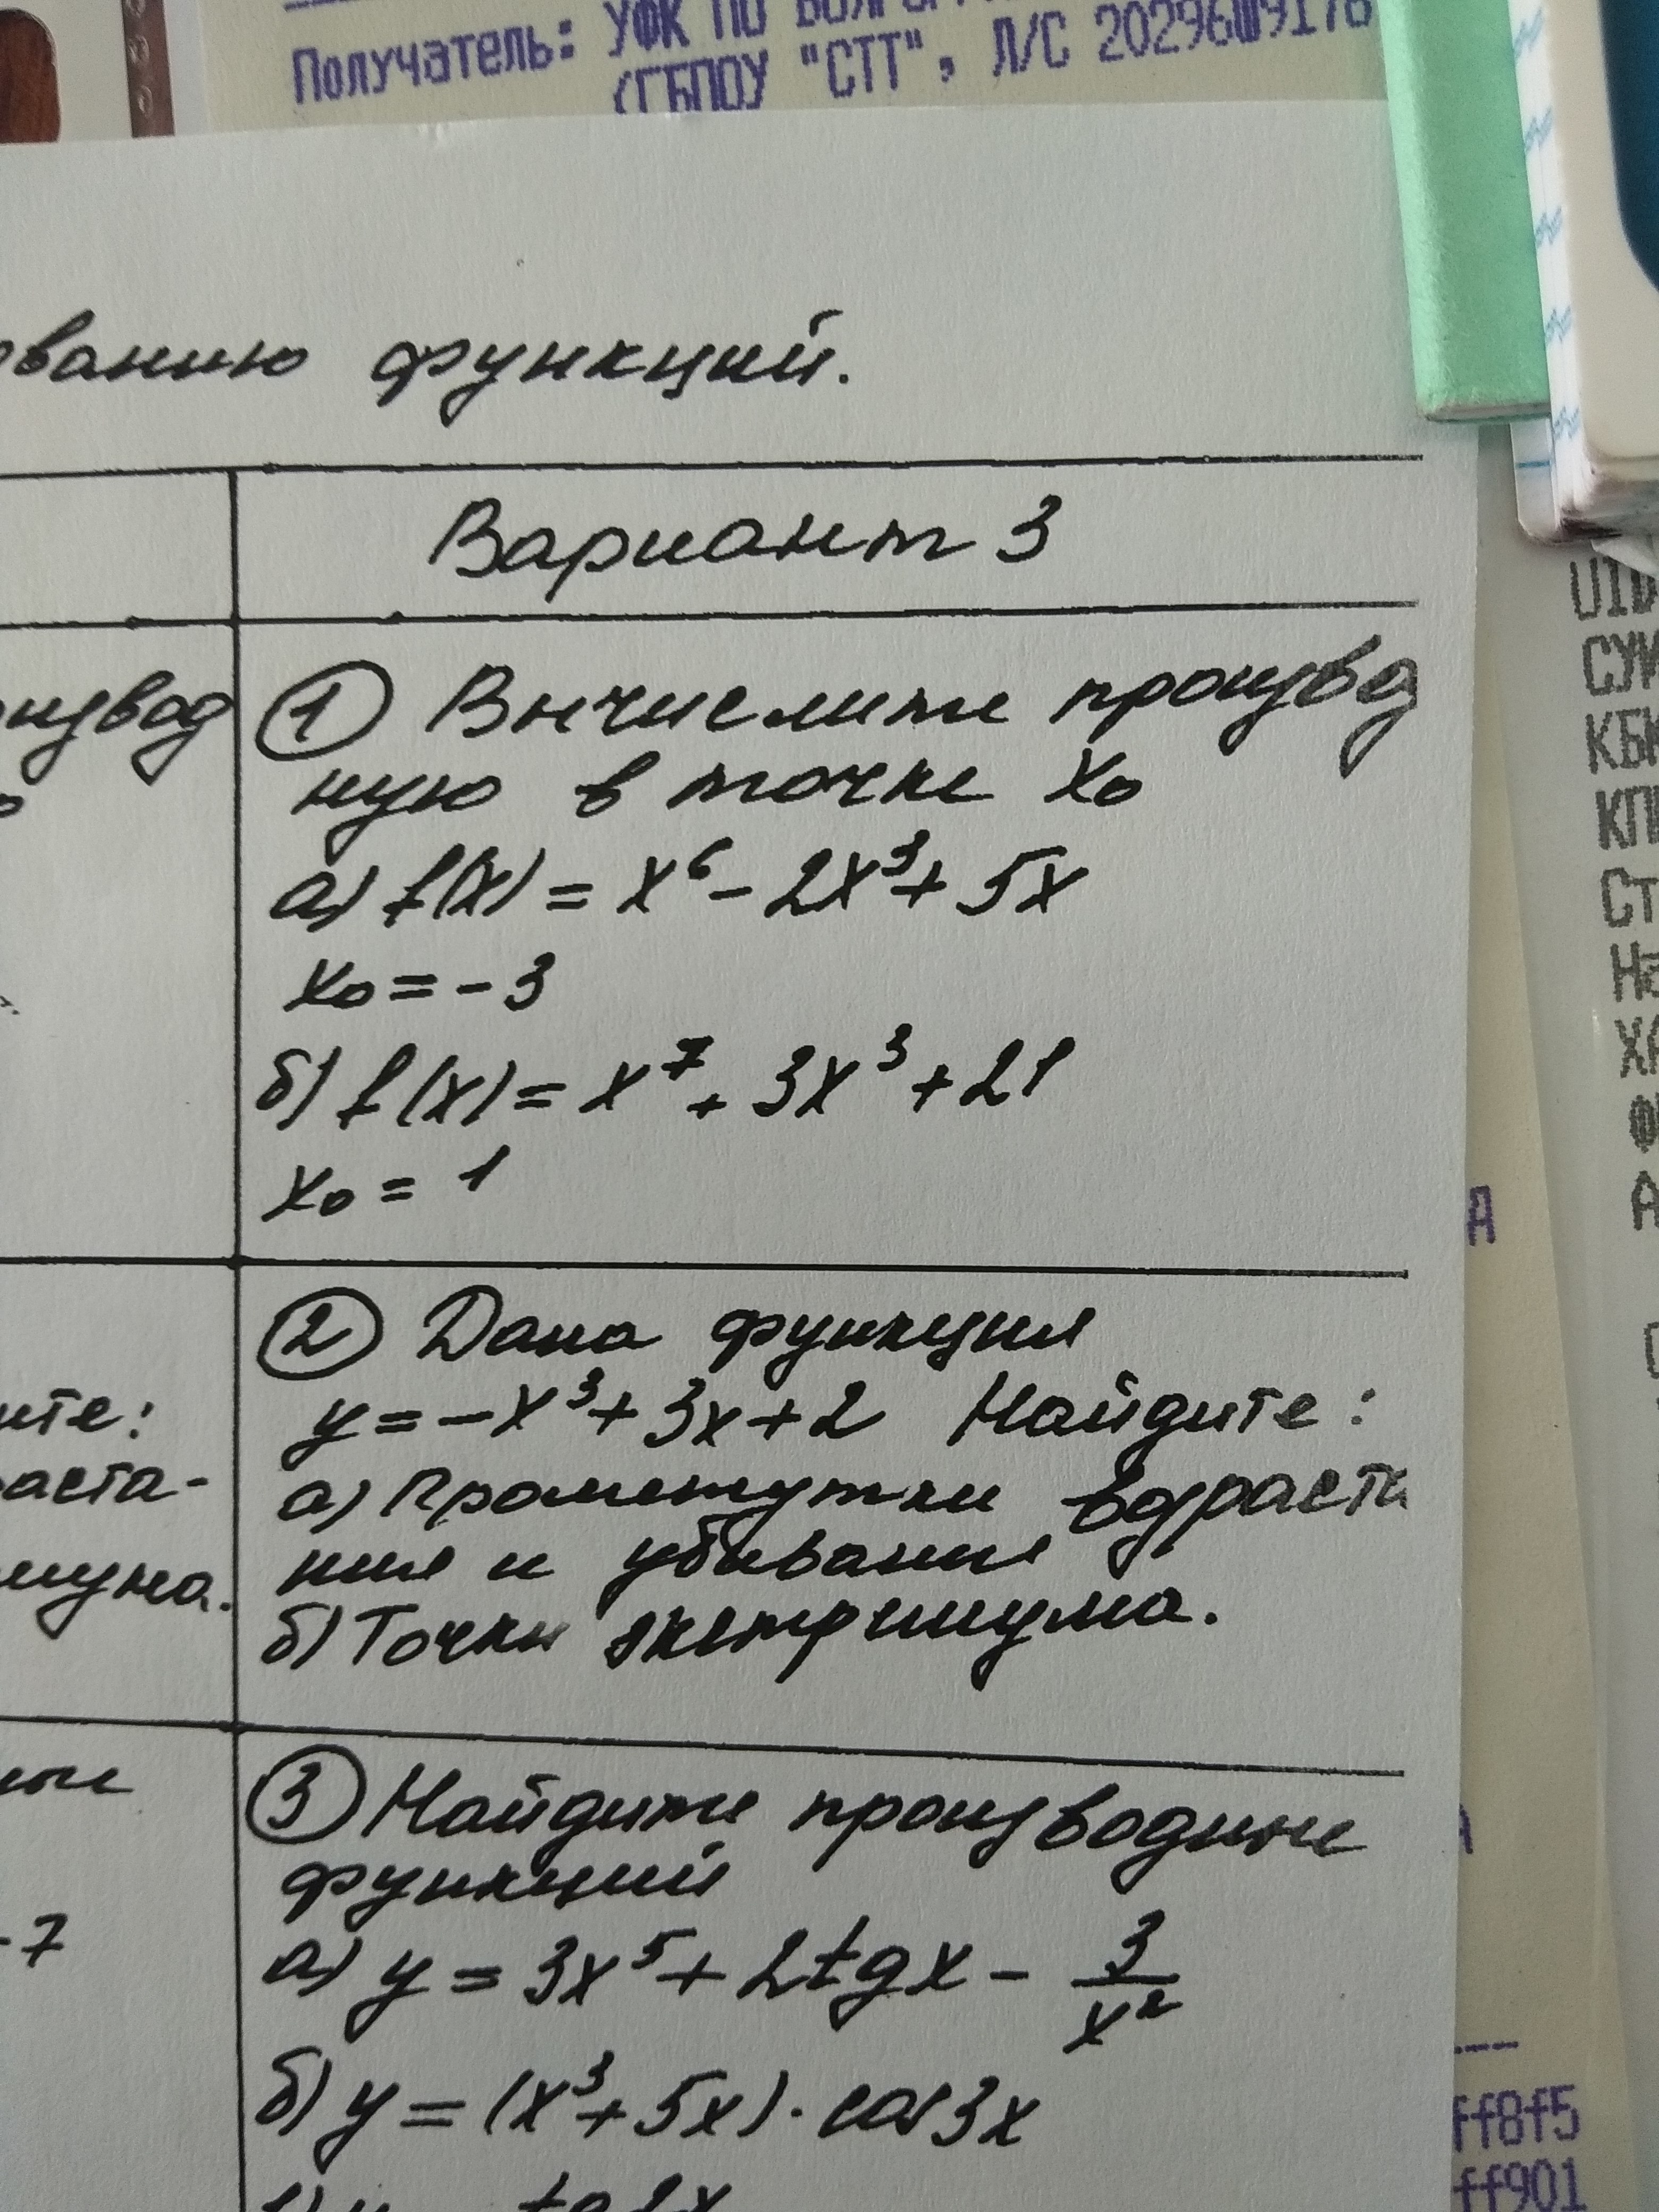 Получатель: УФК ПО
(ГБПОУ "СТТ", Л/С
ованию функций.
Вариант 3
① Вычислите производ
ную в точке x₀
а) f(x) = x⁶ - 2x³ + 5x
x₀ = -3
б) f(x) = x⁷ + 3x³ + 21
x₀ = 1
② Дана функция
y = -x³ + 3x + 2 Найдите:
а) Промежутки возраста
ния и убывания
б) Точки экстремума.
③ Найдите производные
функций
а) y = 3x⁵ + 2tgx - 3/x²
б) y = (x³ + 5x) · cos3x
извод
ите:
аста-
мума.
-7
СУИ
КБК
СТ
А
ff8f5
ff901